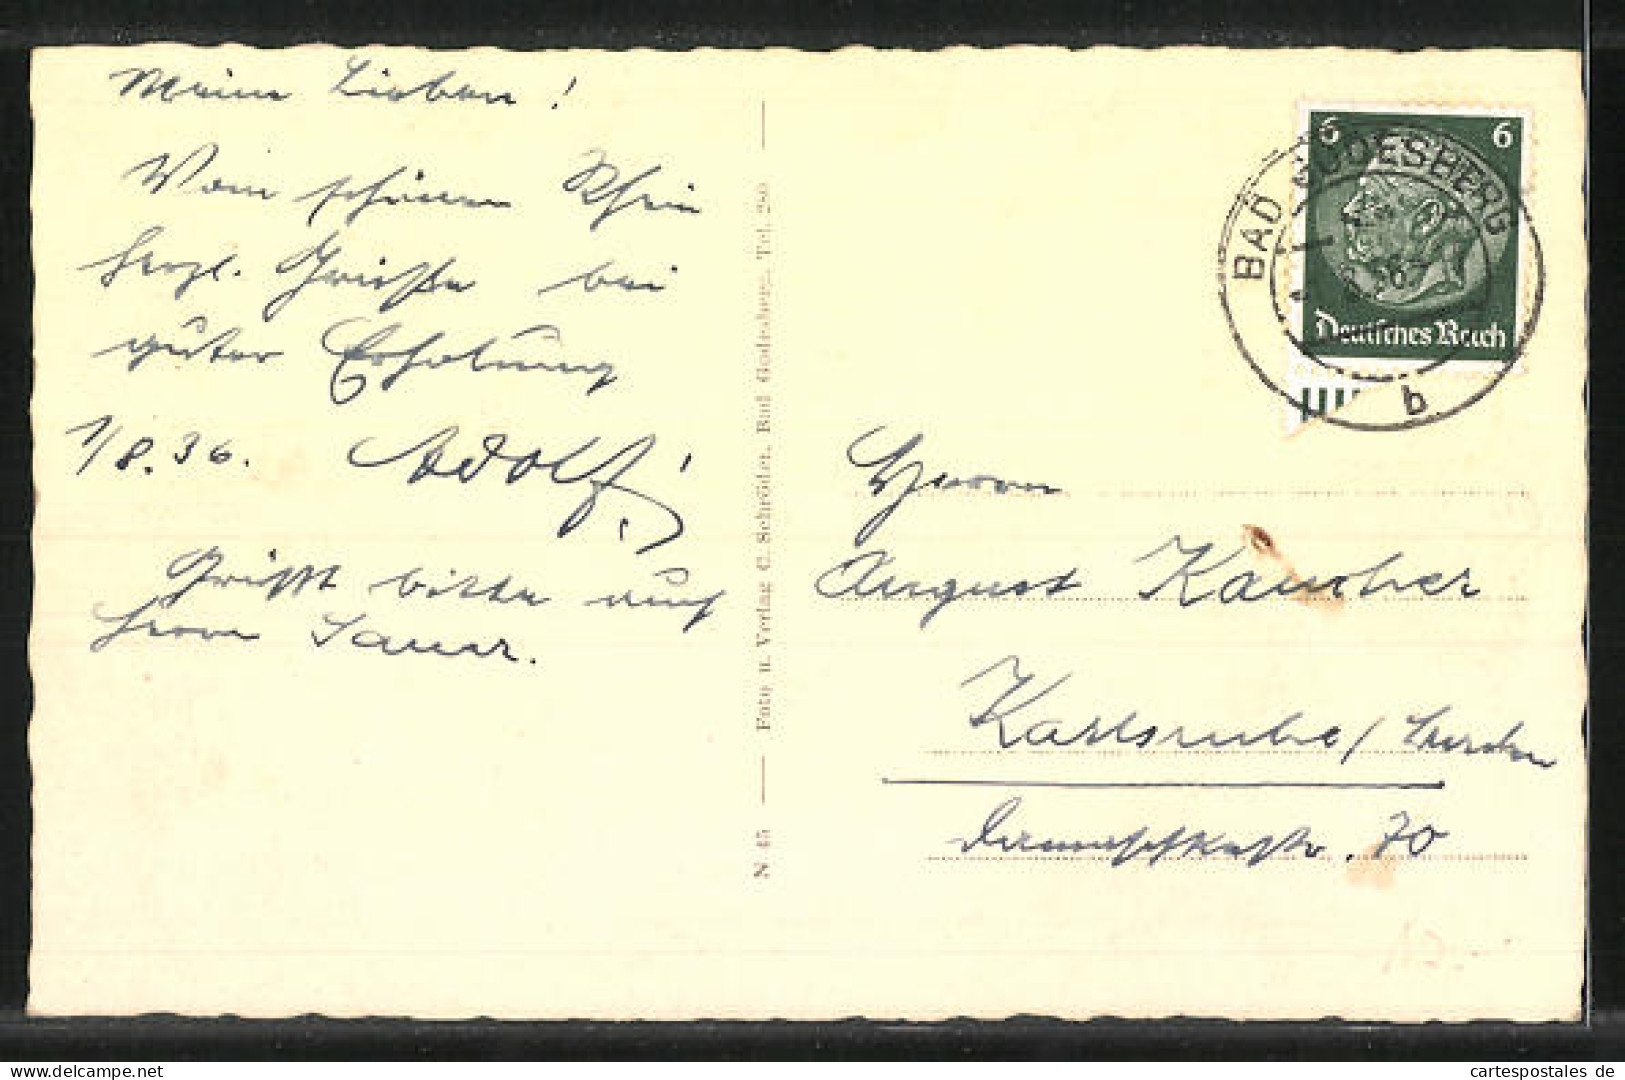 Meine Lieben!
Vom schönen Rhein
herzl. Grüße bei
guter Erholung
1/8.36. Adolf!
Grüßt bitte auch
Herrn Sauer.
N 45 — Foto u. Verlag C. Schröder, Bad Godesberg, Tel. 280 —
6 6
Deutsches Reich
BAD GODESBERG
b
Herrn
August Kaucher
Karlsruhe / Baden
70
cartespostales de